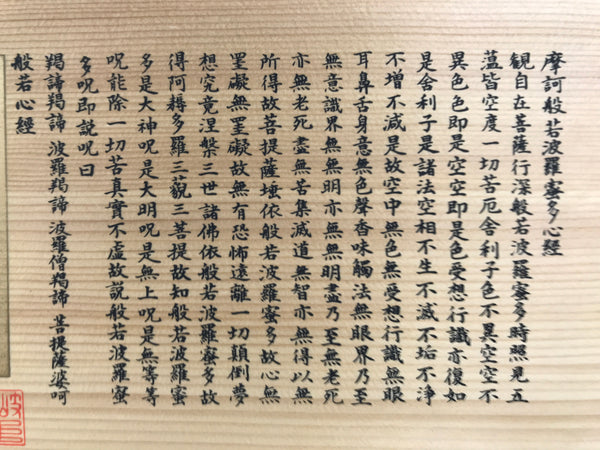 摩訶般若波羅蜜多心經
観自在菩薩行深般若波羅蜜多時照見五
蘊皆空度一切苦厄舎利子色不異空空不
異色色即是空空即是色受想行識亦復如
是舎利子是諸法空相不生不滅不垢不浄
不増不減是故空中無色無受想行識無眼
耳鼻舌身意無色聲香味觸法無眼界乃至
無意識界無無明亦無無明盡乃至無老死
亦無老死盡無苦集滅道無智亦無得以無
所得故菩提薩埵依般若波羅蜜多故心無
罣礙無罣礙故無有恐怖遠離一切顛倒夢
想究竟涅槃三世諸佛依般若波羅蜜多故
得阿耨多羅三藐三菩提故知般若波羅蜜
多是大神呪是大明呪是無上呪是無等等
呪能除一切苦真實不虚故説般若波羅蜜
多呪即説呪曰
羯諦羯諦 波羅羯諦 波羅僧羯諦 菩提薩婆呵
般若心經